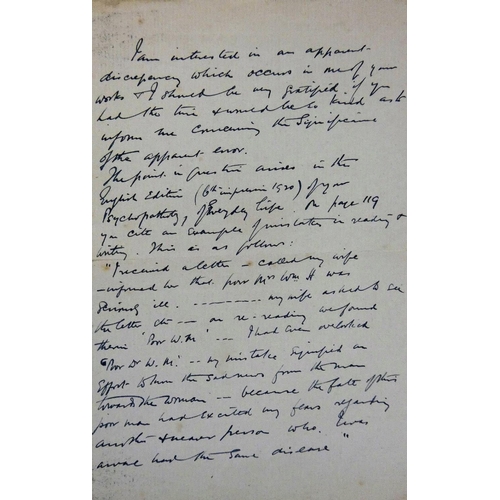 I am interested in an apparent
discrepancy which occurs in one of your
works & I should be very gratified if you
had the time & would be so kind as to
inform me concerning the significance
of the apparent error.
The point in question arises in the
English Edition (6th impression 1920) of your
Psychopathology of Everyday Life. On page 119
you cite an example of mistakes in reading &
writing. This is as follows:
"I received a letter – called my wife
– informed her that poor Mrs Wm H. was
seriously ill. ---------- my wife asked to see
the letter etc --- on re-reading we found
therein 'Poor W.M.' --- I had even overlooked
'Poor Dr W.M.' -- my mistake signified an
effort to turn the sad news from the man
towards the woman – because the fate of this
poor man had excited my fears regarding
another & nearer person who, I was
aware had the same disease"